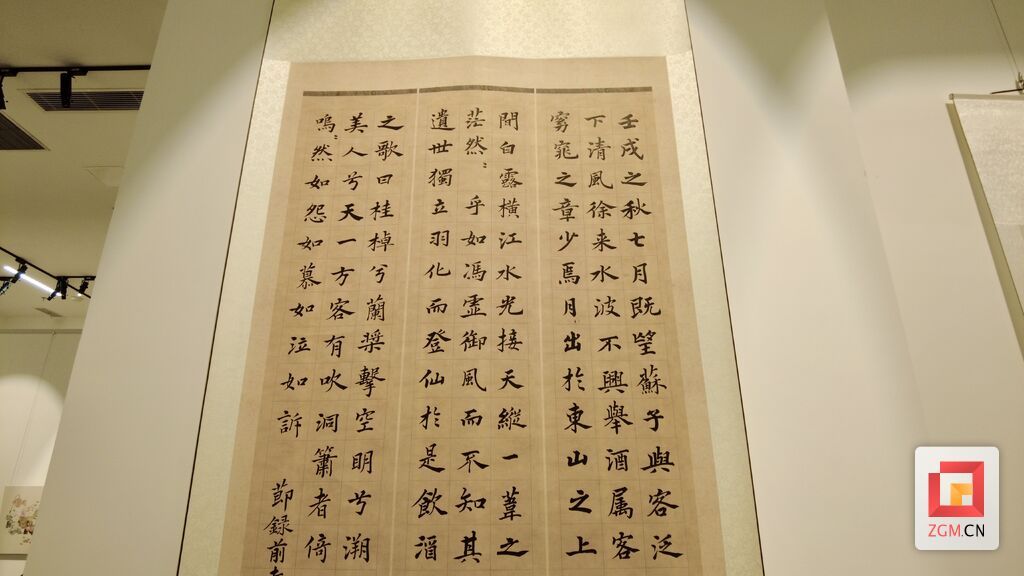 壬戌之秋七月既望蘇子與客泛
下清風徐来水波不興舉酒属客
窈窕之章少焉月出於東山之上
間白露橫江水光接天縱一葦之
茫然〻乎如馮虛御風而不知其
遺世獨立羽化而登仙於是飲酒
之歌曰桂棹兮蘭槳擊空明兮溯
美人兮天一方客有吹洞簫者倚
嗚〻然如怨如慕如泣如訴
節録前
ZGM.CN